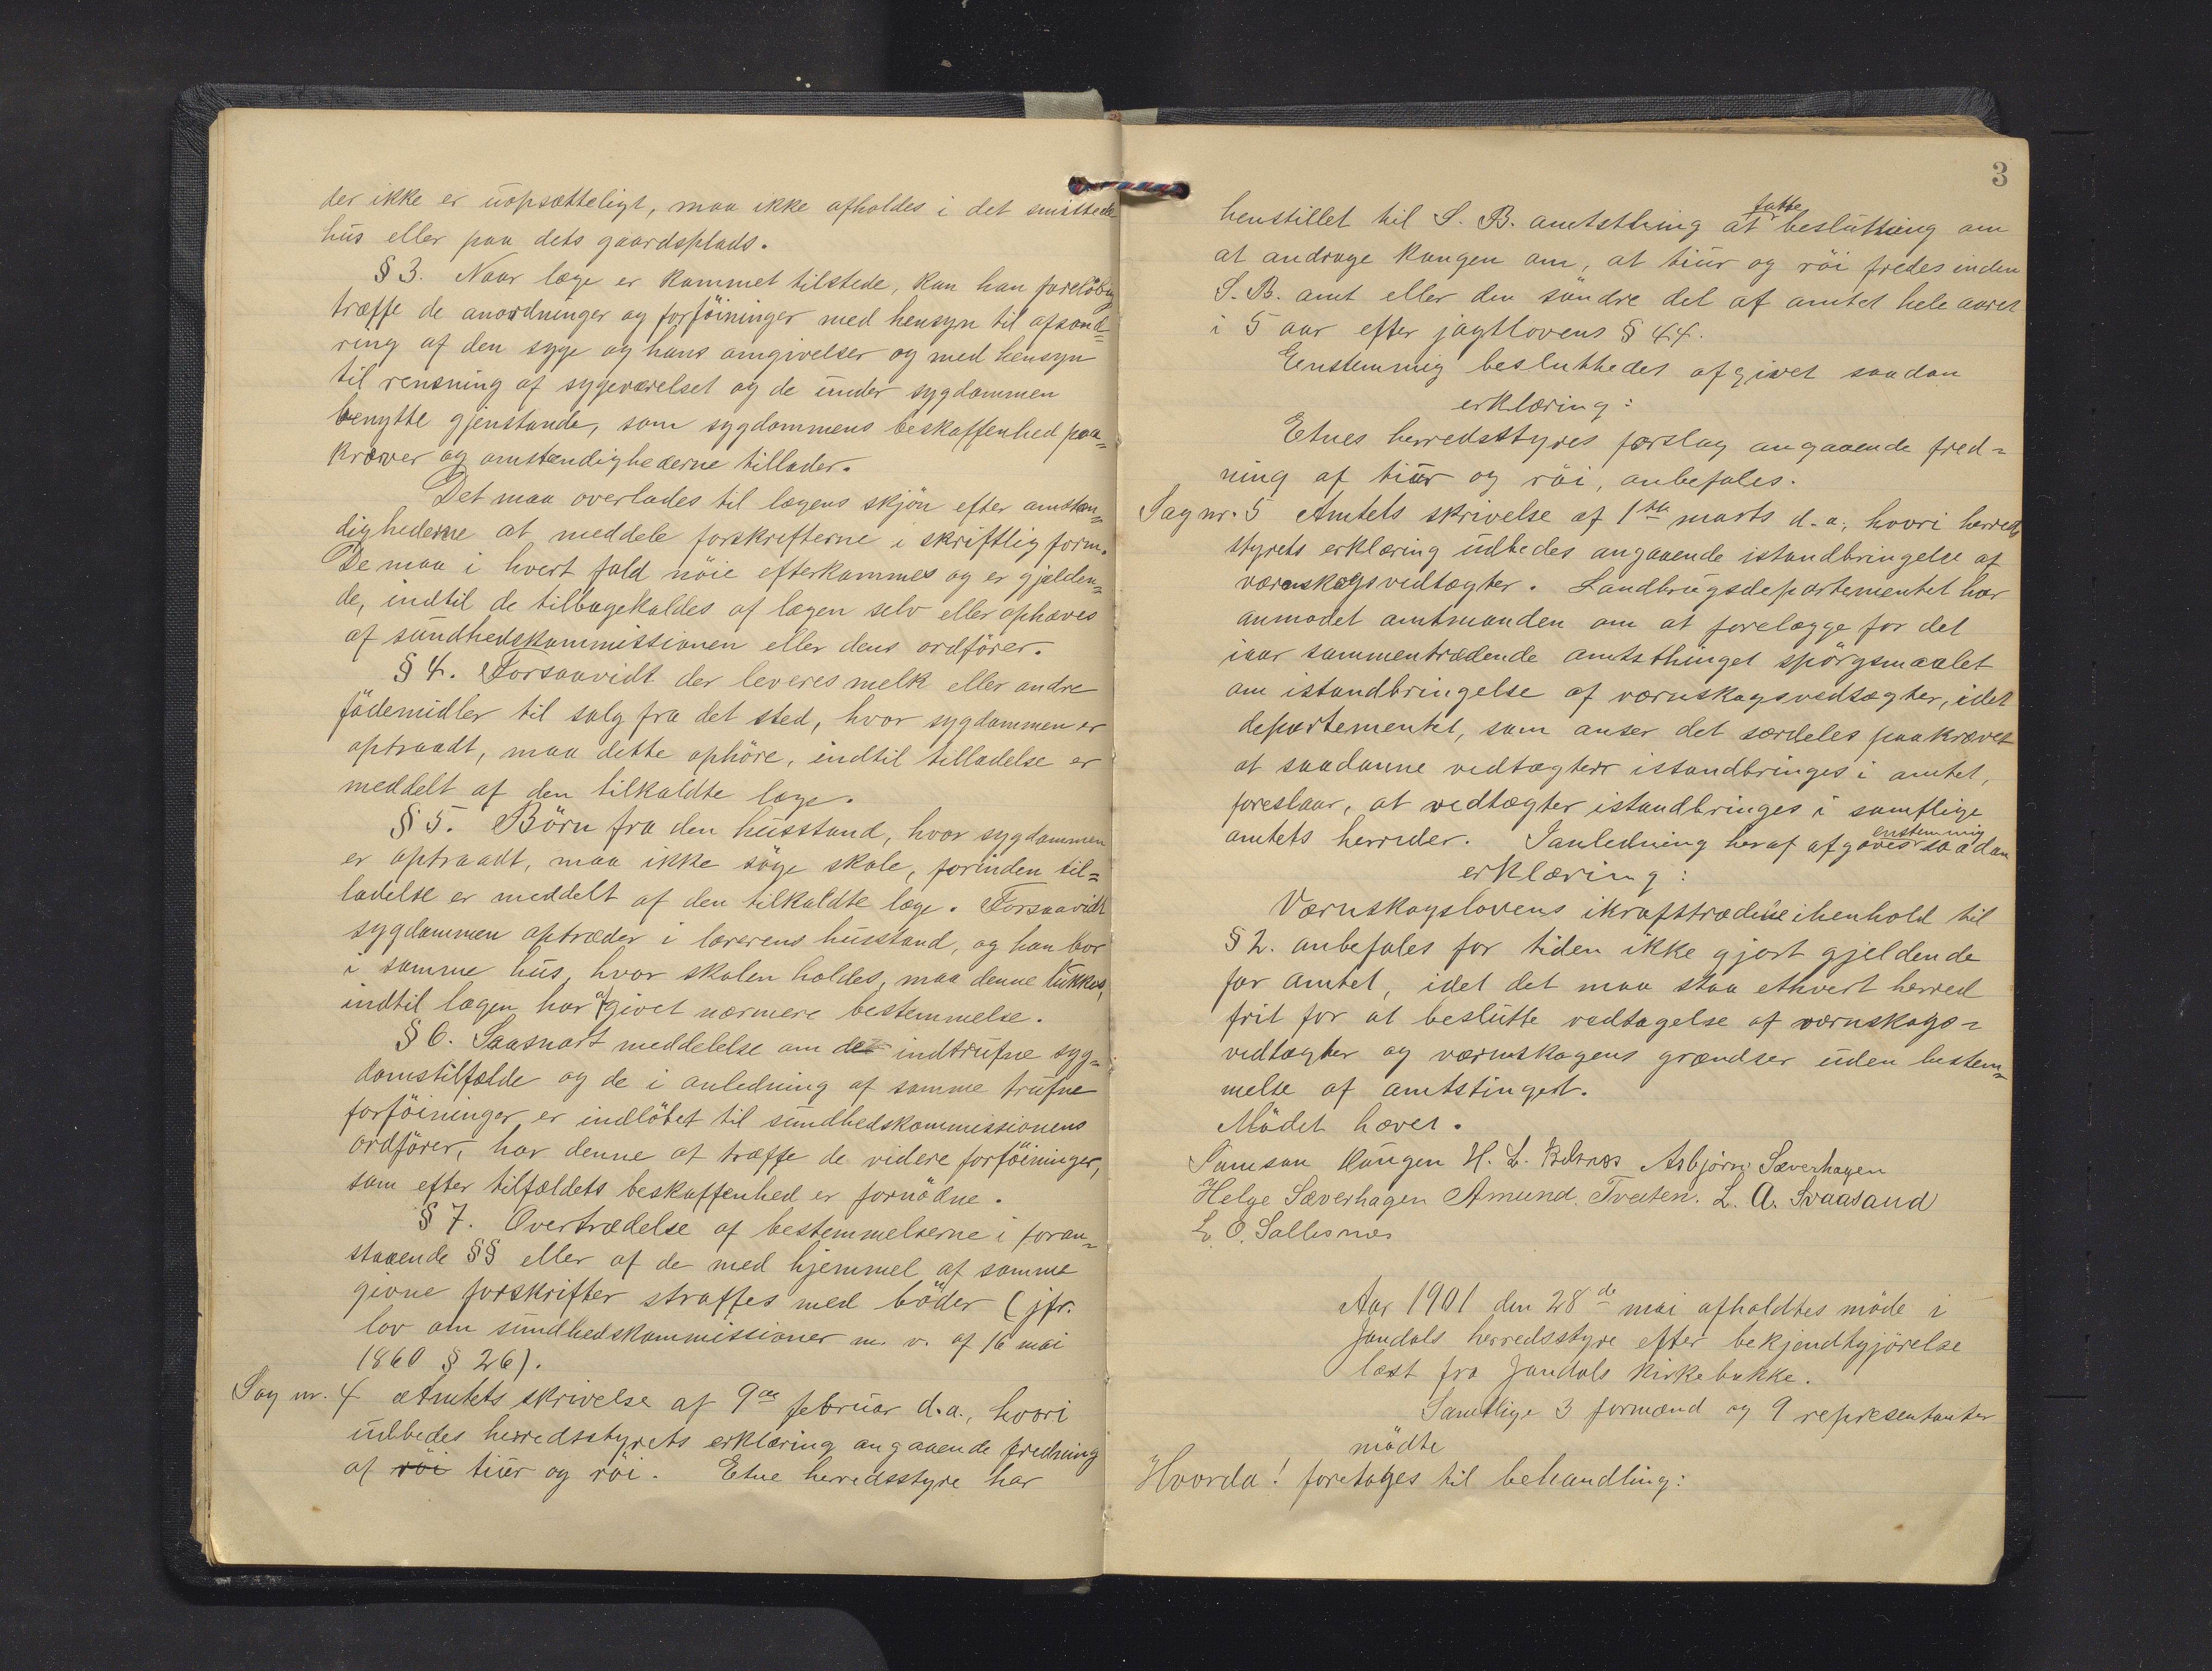 der ikke er uopsætteligt, maa ikke afholdes i det smittede
hus eller paa dets gaardsplads.
§ 3. Naar læge er kommet tilstede, kan han foreløbig
træffe de anordninger og forföininger med hensyn til afsond=
ring af den syge og hans omgivelser og med hensyn
til rensning af sygeværelset og de under sygdommen
benytte gjenstande, som sygdommens beskaffenhed paa=
kræver og omstændighederne tillader.
Det maa overlades til lægens skjön efter omstæn=
dighederne at meddele forskrifterne i skriftlig form.
De maa i hvert fald nöie efterkommes og er gjælden=
de, indtil de tilbagekaldes af lægen selv eller ophæves
af sundhedskommissionen eller dens ordförer.
§ 4. Forsaavidt der leveres melk eller andre
födemidler til salg fra det sted, hvor sygdommen er
optraadt, maa dette ophöre, indtil tilladelse er
meddelt af den tilkaldte læge.
§ 5. Börn fra den husstand, hvor sygdommen
er optraadt, maa ikke söge skole, forinden til=
ladelse er meddelt af den tilkaldte læge. Forsaavidt
sygdommen optræder i lærerens husstand, og han bor
i samme hus, hvor skolen holdes, maa denne lukkes,
indtil lægen har afgivet nærmere bestemmelse.
§ 6. Saasnart meddelelse om de indtrufne syg=
domstilfælde og de i anledning af samme trufne
forföininger er indlöbet til sundhedskommissionens
ordförer, har denne at træffe de videre forföininger,
som efter tilfældets beskaffenhed er fornödne.
§ 7. Overtrædelse af bestemmelserne i foran=
staaende §§ eller af de med hjemmel af samme
givne forskrifter straffes med böder (jfr.
lov om sundhedskommissioner m. v. af 16 mai
1860 § 26).
Sag nr. 4 Amtets skrivelse af 9de februar d.a., hvori
udbedes herredsstyrets erklæring angaaende fredning
af röi tiur og röi. Etne herredsstyre har
3
henstillet til S. B. amtsthing at fatte beslutning om
at andrage kongen om, at tiur og röi fredes inden
S. B. amt eller den söndre del af amtet hele aaret
i 5 aar efter jagtlovens § 44.
Eenstemmig besluttedes afgivet saadan
erklæring:
Etnes herredsstyres forslag angaaende fred=
ning af tiur og röi, anbefales.
Sag nr. 5 Amtets skrivelse af 1ste marts d. a., hvori herreds
styrets erklæring udbedes angaaende istandbringelse af
værnskogsvedtægter. Landbrugsdepartementet har
anmodet amtmanden om at forelægge for det
iaar sammentrædende amtsthinget spörgsmaalet
om istandbringelse af værnskogsvedtægter, idet
departementet, som anser det særdeles paakrævet
at saadanne vedtægter istandbringes i amtet,
foreslaar, at vedtægter istandbringes i samtlige
amtets herreder. I anledning heraf afgaves enstemmig saadan
erklæring:
Værnskogslovens ikrafttrædelse i henhold til
§ 2. anbefales for tiden ikke gjort gjeldende
for amtet, idet det maa staa ethvert herred
frit for at beslutte vedtagelse af værnskogs=
vedtægter og værnskogens grændser uden bestem=
melse af amtstinget.
Mödet hævet.
Samson Haugen H. L. Belsnes Asbjørn Sæverhagen
Helge Sæverhagen Amund Tveiten. L. A. Svaasand
L. O. Sollesnes
Aar 1901 den 28de mai afholdtes möde i
Jondals herredsstyre efter bekjendtgjörelse
læst fra Jondals kirkebakke.
Samtlige 3 formænd og 9 representanter
mödte
Hvorda! foretoges til behandling: